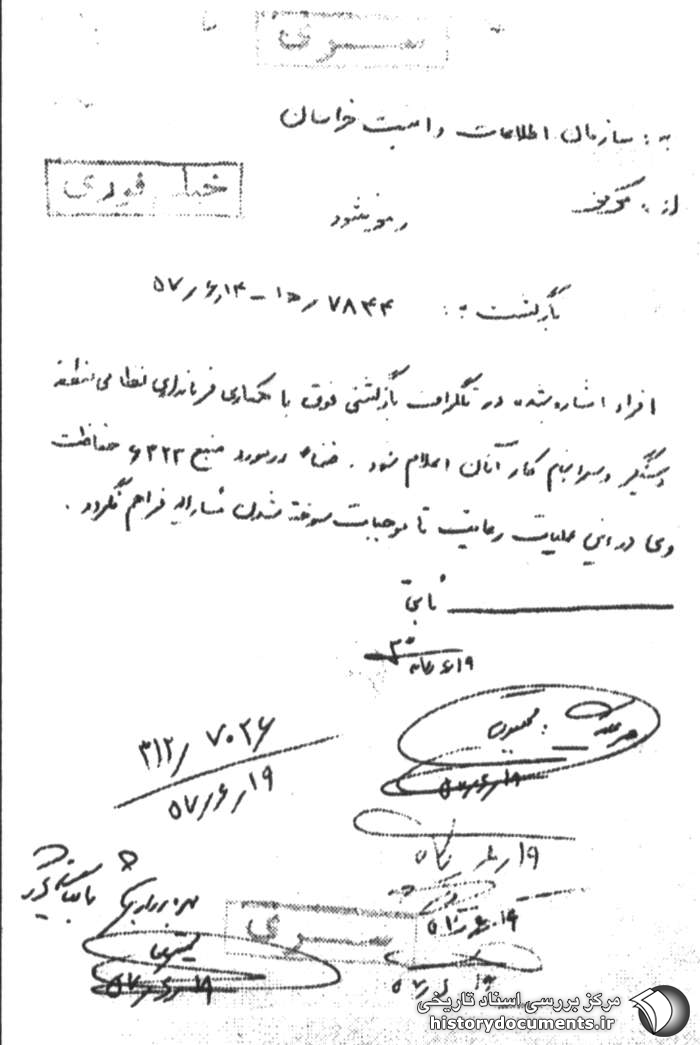 سری
به: سازمان اطلاعات و امنیت خراسان
خیلی فوری
از: مرکز
رمز شود
بازگشت به: ۷۸۴۴/ﻫ۱ـ ۵۷/۶/۱۴
افراد اشاره شده در تلگراف بازگشتی فوق با همکاری فرمانداری نظامی منطقه
دستگیر و سرانجام کار آنان اعلام شود. ضمناً در مورد منبع ۶۳۲۳ حفاظت
وی در این عملیات رعایت تا موجبات سوخته شدن مشارالیه فراهم نگردد.
ثابتی
۵۷/۶/۱۹
۳۱۲/۷۰۲۶
۵۷/۶/۱۹
۵۷/۶/۱۹
۵۷/۶/۱۹
۵۷/۶/۱۹
سری
۵۷/۶/۱۹
مرکز بررسی اسناد تاریخی
historydocuments.ir